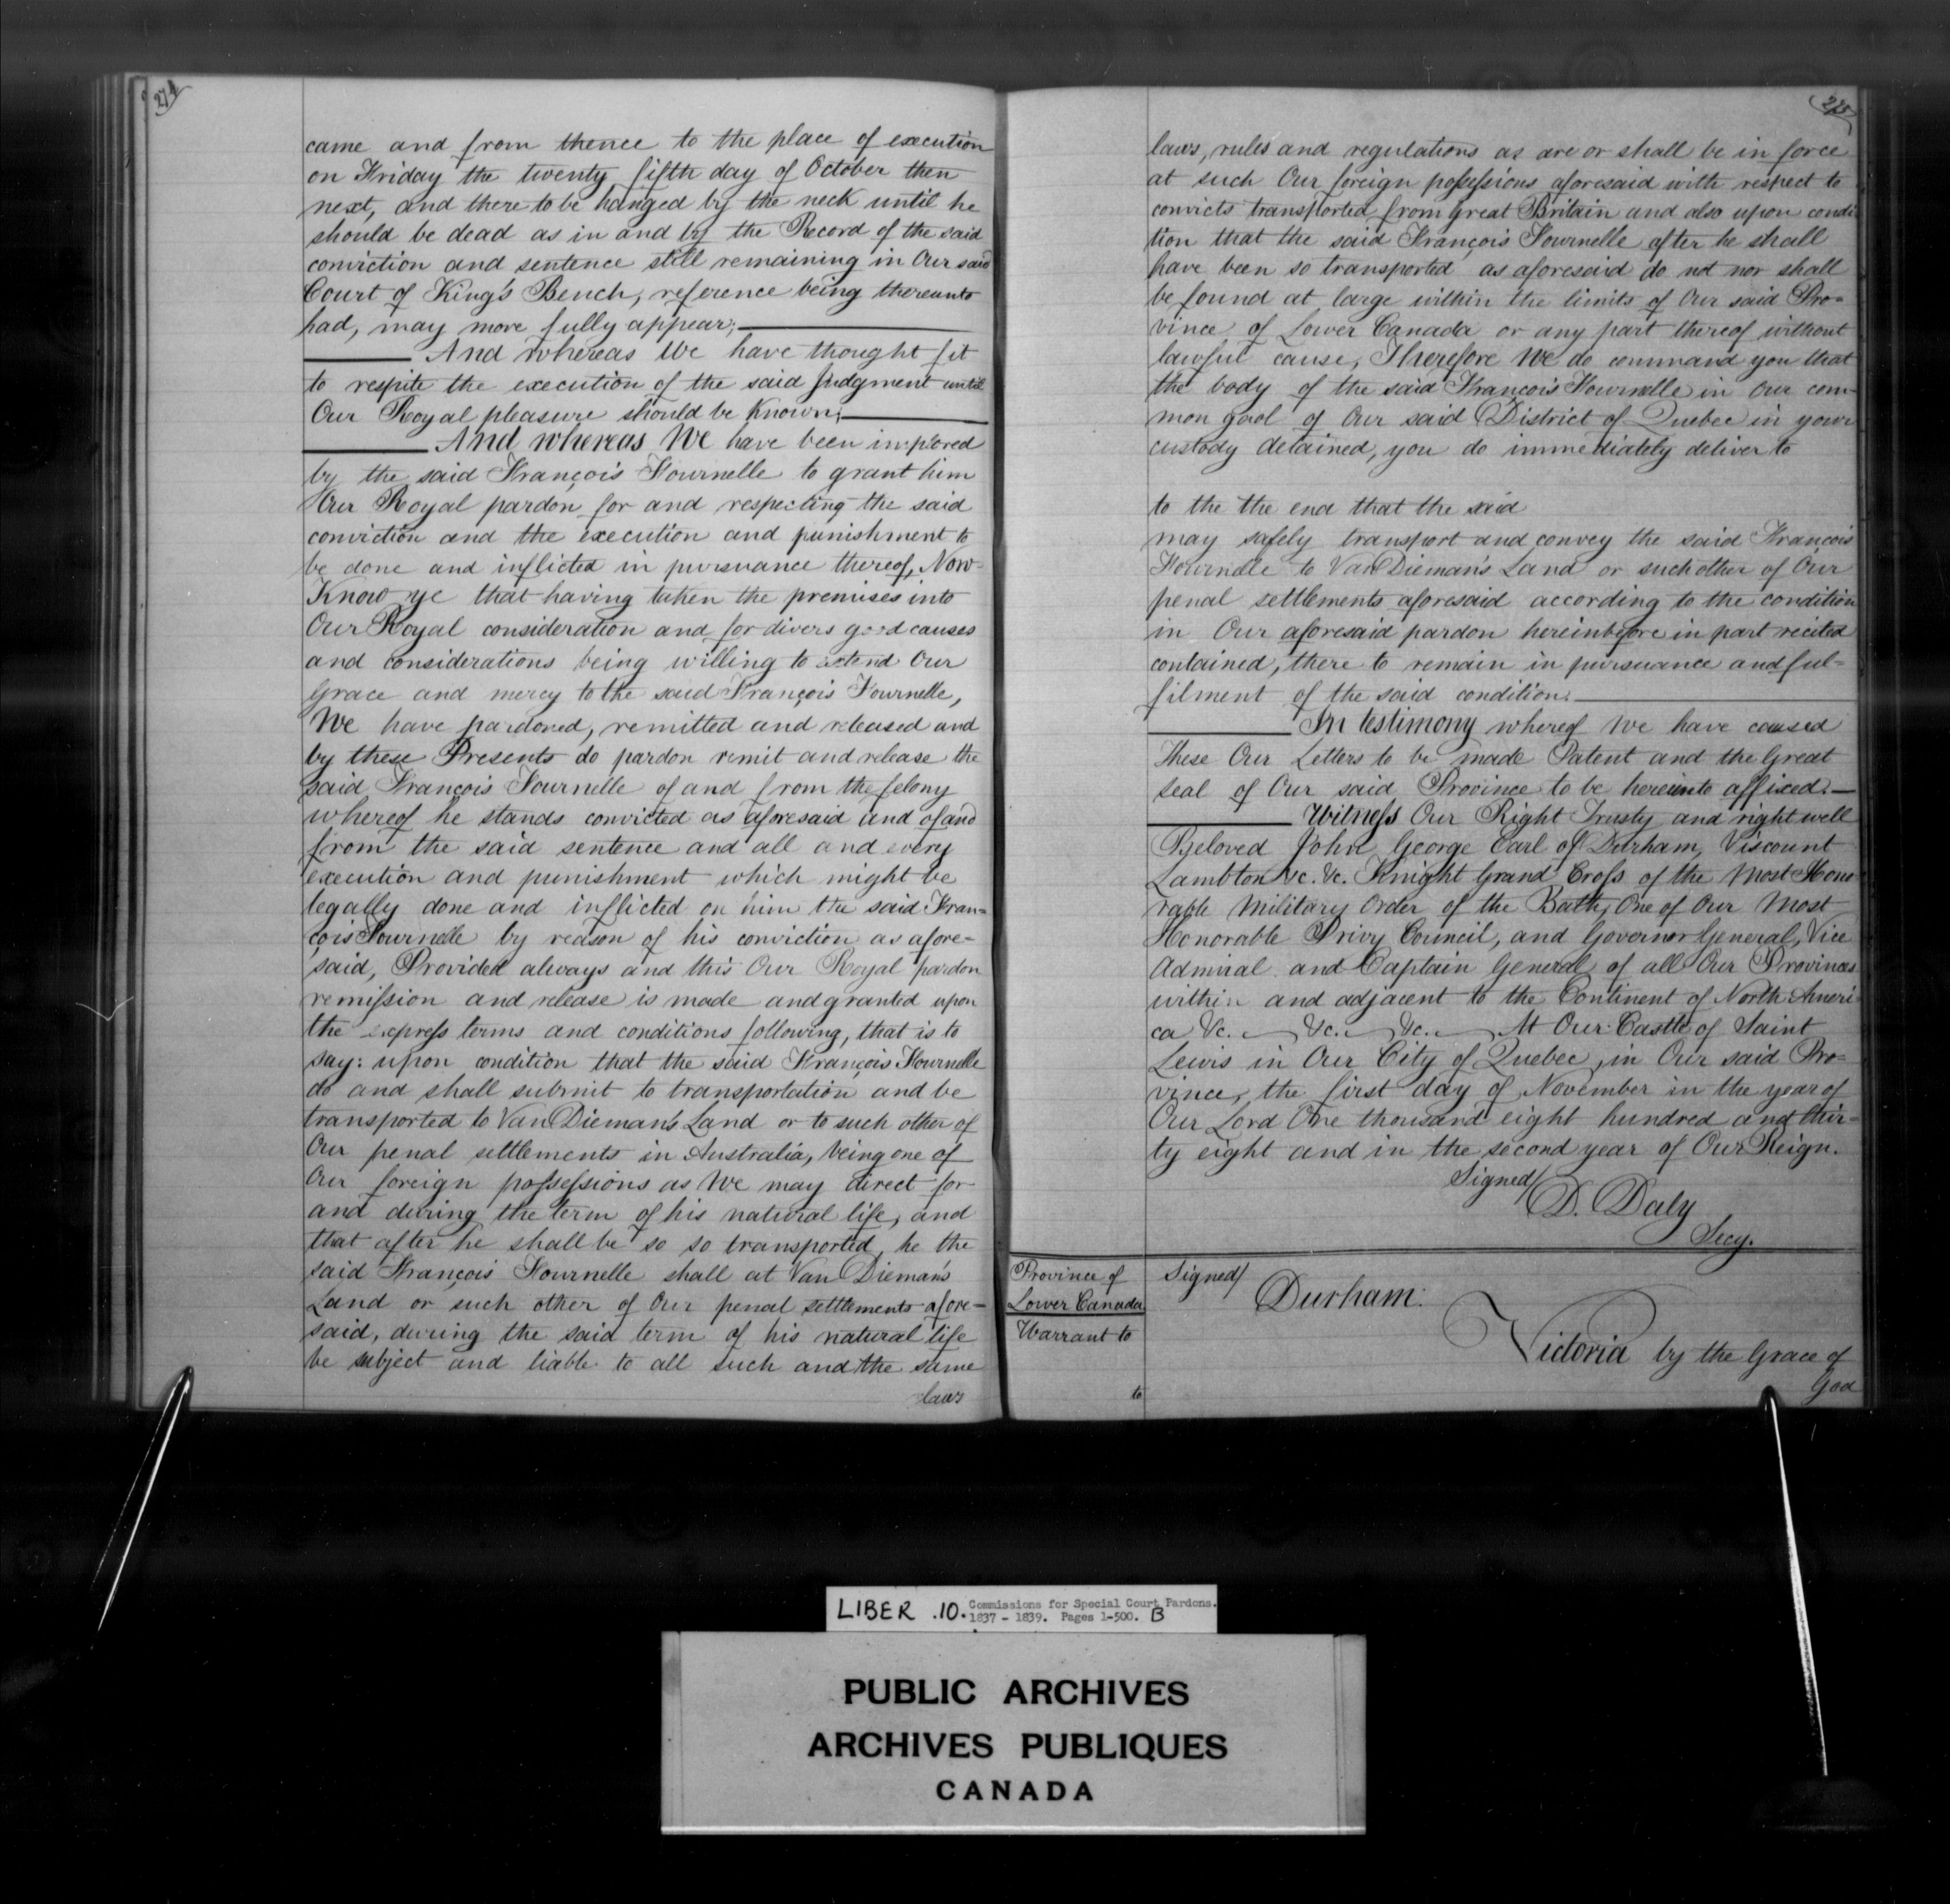 274
came and from thence to the place of execution
on Friday the twenty fifth day of October then
next, and there to be hanged by the neck until he
should be dead as in and by the Record of the said
conviction and sentence still remaining in Our said
Court of King's Bench, reference being thereunto
had, may more fully appear;
And whereas We have thought fit
to respite the execution of the said Judgment until
Our Royal pleasure should be known;
And whereas We have been implored
by the said François Fournelle to grant him
Our Royal pardon for and respecting the said
conviction and the execution and punishment to
be done and inflicted in pursuance thereof, Now
Know ye that having taken the premises into
Our Royal consideration and for divers good causes
and considerations being willing to extend Our
grace and mercy to the said François Fournelle,
We have pardoned, remitted and released and
by these Presents do pardon remit and release the
said François Fournelle of and from the felony
whereof he stands convicted as aforesaid and of and
from the said sentence and all and every
execution and punishment which might be
legally done and inflicted on him the said Fran=
çois Fournelle by reason of his conviction as afore=
said, Provided always and this Our Royal pardon
remission and release is made and granted upon
the express terms and conditions following, that is to
say: upon condition that the said François Fournelle
do and shall submit to transportation and be
transported to Van Dieman's Land or to such other of
Our penal settlements in Australia, being one of
Our foreign possessions as We may direct for
and during the term of his natural life, and
that after he shall be so so transported, he the
said François Fournelle shall at Van Dieman's
Land or such other of Our penal settlements afore=
said, during the said term of his natural life
be subject and liable to all such and the same
laws
275
laws, rules and regulations as are or shall be in force
at such Our foreign possessions aforesaid with respect to
convicts transported from Great Britain and also upon condi
tion that the said François Fournelle after he shall
have been so transported as aforesaid do not nor shall
be found at large within the limits of Our said Pro=
vince of Lower Canada or any part thereof without
lawful cause, Therefore We do command you that
the body of the said François Fournelle in Our com=
mon gaol of Our said District of Quebec in your
custody detained, you do immediately deliver to
to the the end that the said
may safely transport and convey the said François
Fournelle to Van Dieman's Land or such other of Our
penal settlements aforesaid according to the condition
in Our aforesaid pardon hereinbefore in part recited
contained, there to remain in pursuance and ful=
filment of the said condition.
In testimony whereof We have caused
These Our Letters to be made Patent and the Great
Seal of Our said Province to be hereunto affixed.
Witness Our Right Trusty and right well
Beloved John George Earl of Durham, Viscount
Lambton &c. &c. Knight Grand Cross of the Most Hono
rable Military Order of the Bath, One of Our Most
Honorable Privy Council, and Governor General, Vice
Admiral and Captain General of all Our Provinces
within and adjacent to the Continent of North Ameri
ca &c. &c. &c. At Our Castle of Saint
Lewis in Our City of Quebec, in Our said Pro=
vince, the first day of November in the year of
Our Lord One thousand eight hundred and thir=
ty eight and in the second year of Our Reign.
Signed/ D. Daly
Secy.
Province of
Lower Canada
Warrant to
to
Signed/ Durham.
Victoria by the Grace of
God
LIBER .10. Commissions for Special Court Pardons.
1837 - 1839. Pages 1-500. B
PUBLIC ARCHIVES
ARCHIVES PUBLIQUES
CANADA